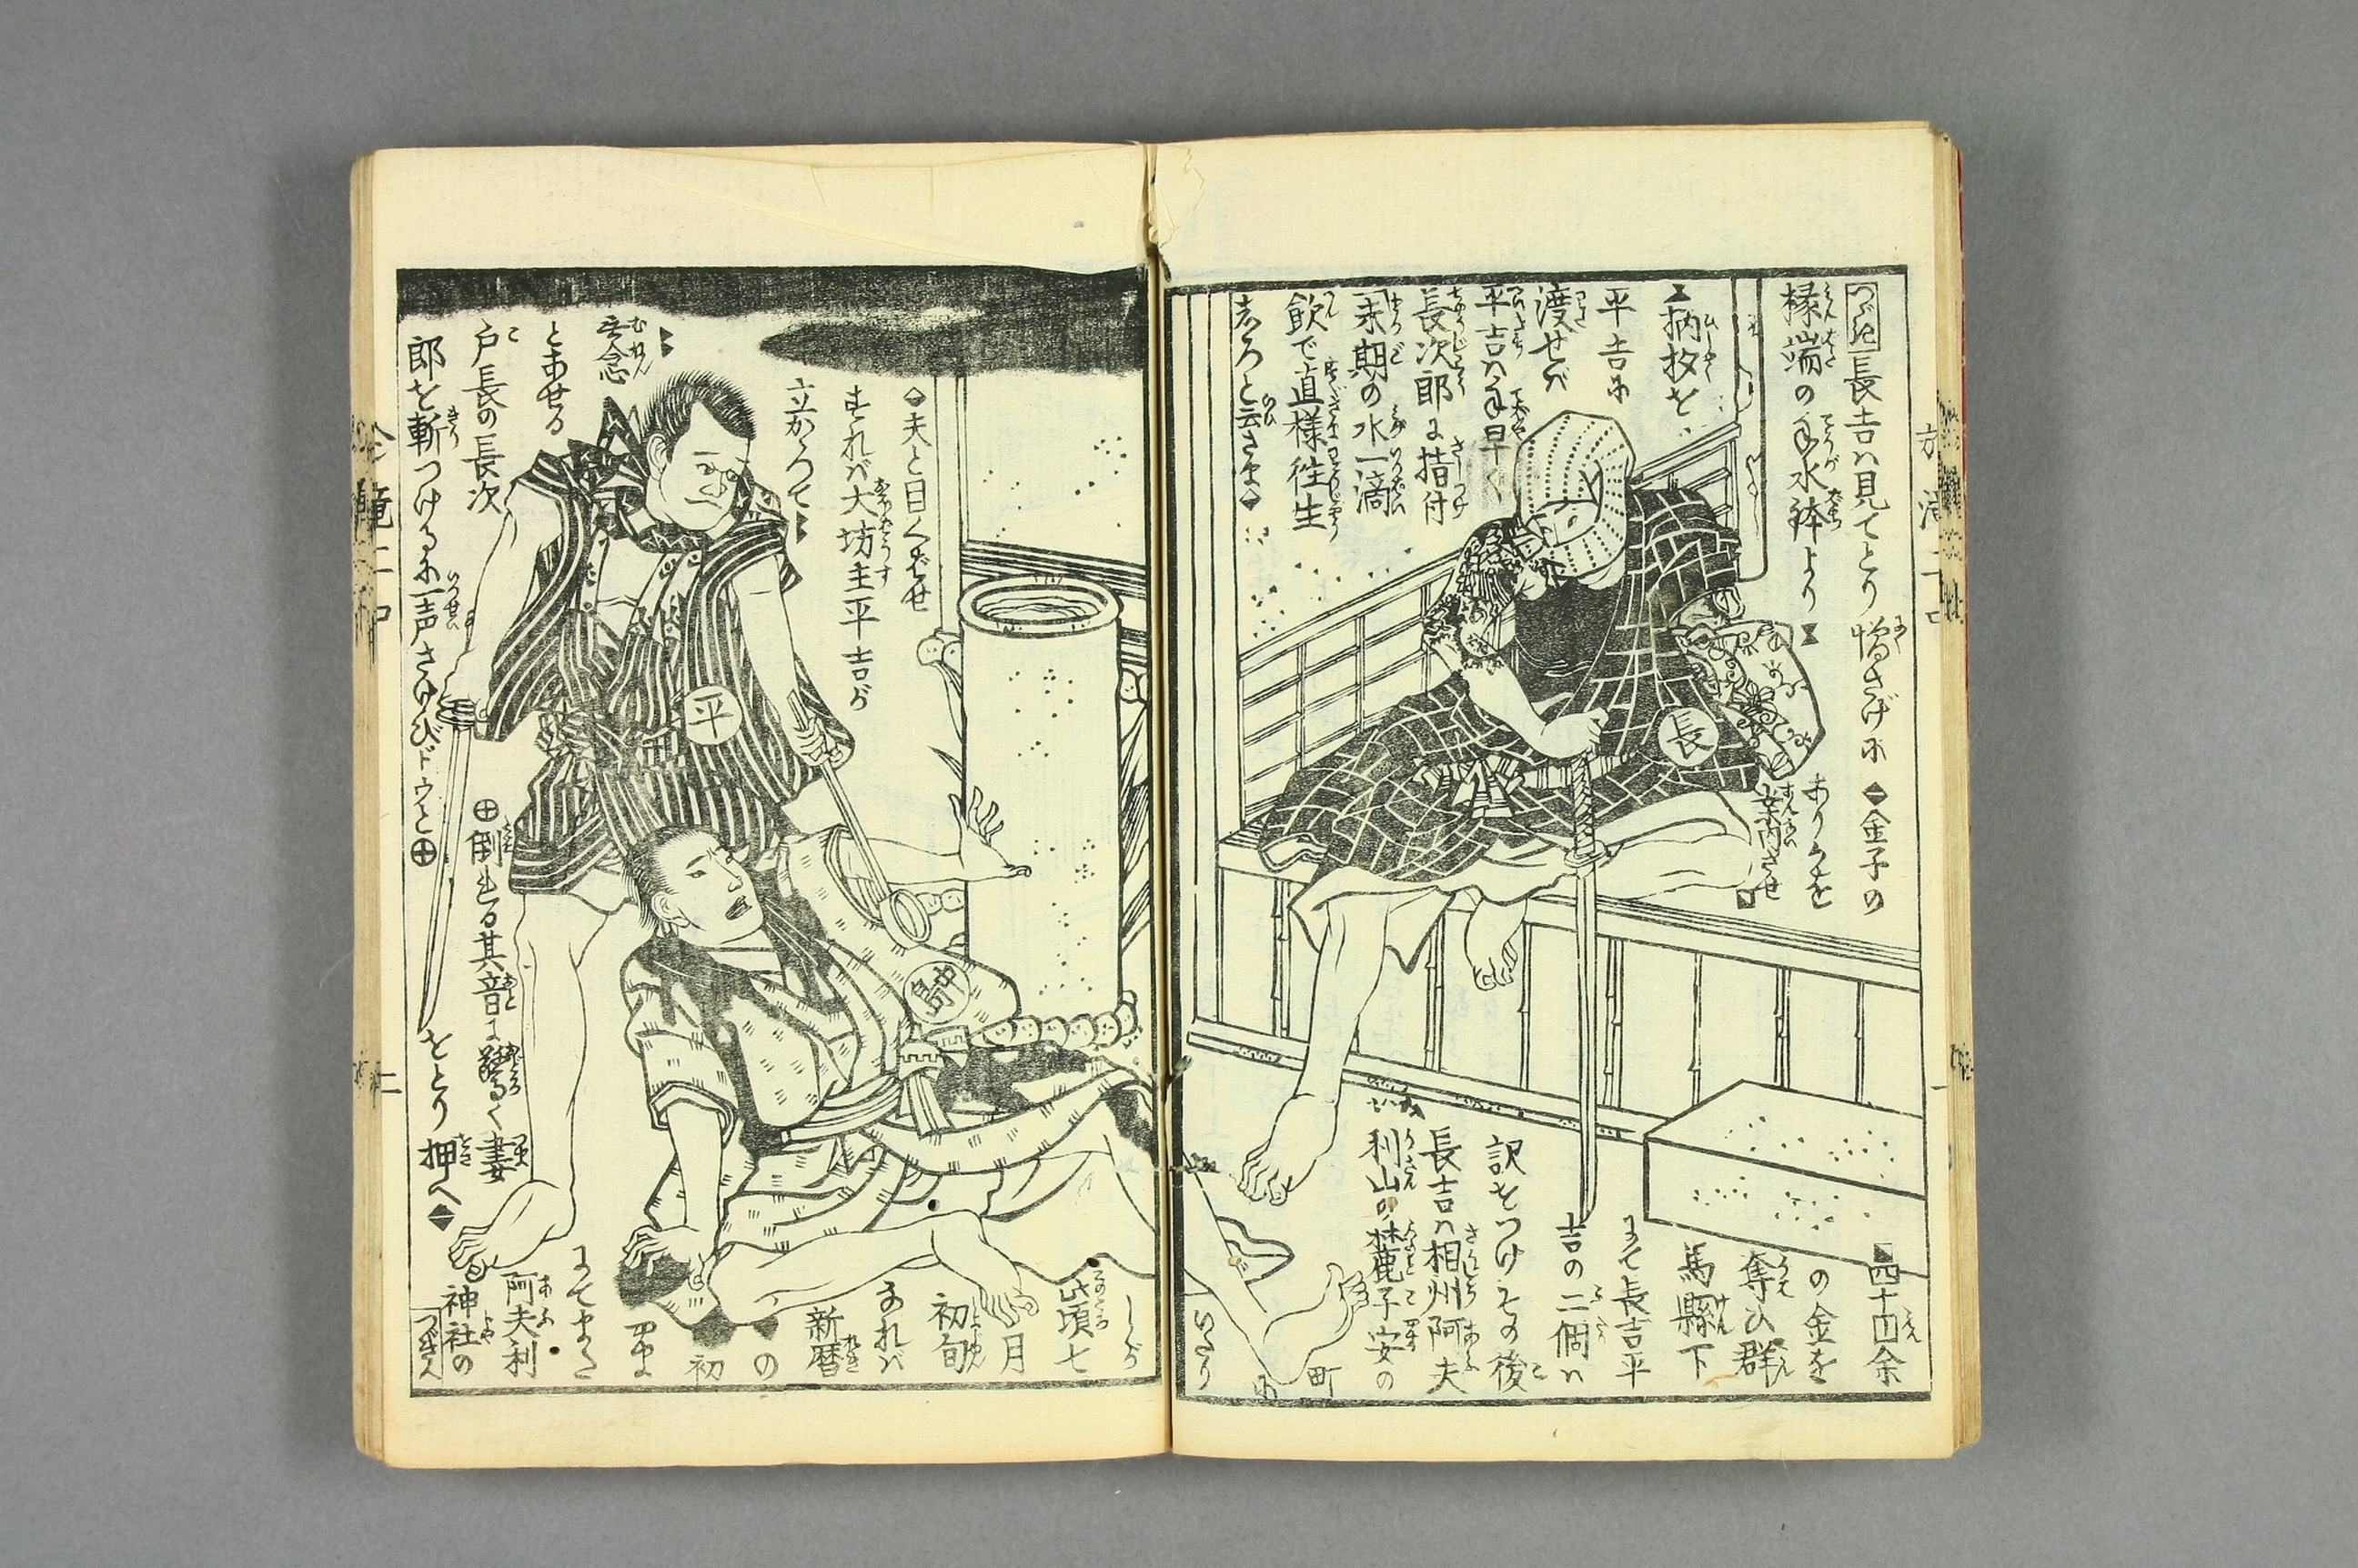 つゞき
長吉ハ見てとり憎さげに
椽端の手水鉢より
柄杓を
平吉に
渡せバ
平吉ハ手早く
長次郎に指付
末期の水一滴
飲で直様往生
しろと云さま
夫と目くばせ
すれバ大坊主平吉が
立かゝつて
無念
とあせる
戸長の長次
郎を斬つけるに一声さけびドウと
倒れる其音に驚く妻
をとり押へ
金子の
ありかを
案内させ
四十円余
の金を
奪ひ群
馬縣下
にて長吉平
吉の二個ハ
訳をつけその後
長吉ハ相州阿夫
利山の麓子安の
町
に
いたり
しが
此頃七
月
初旬
なれバ
新暦
の
初
にてまた
阿夫利
神社の
つぎへ
長
平
中島